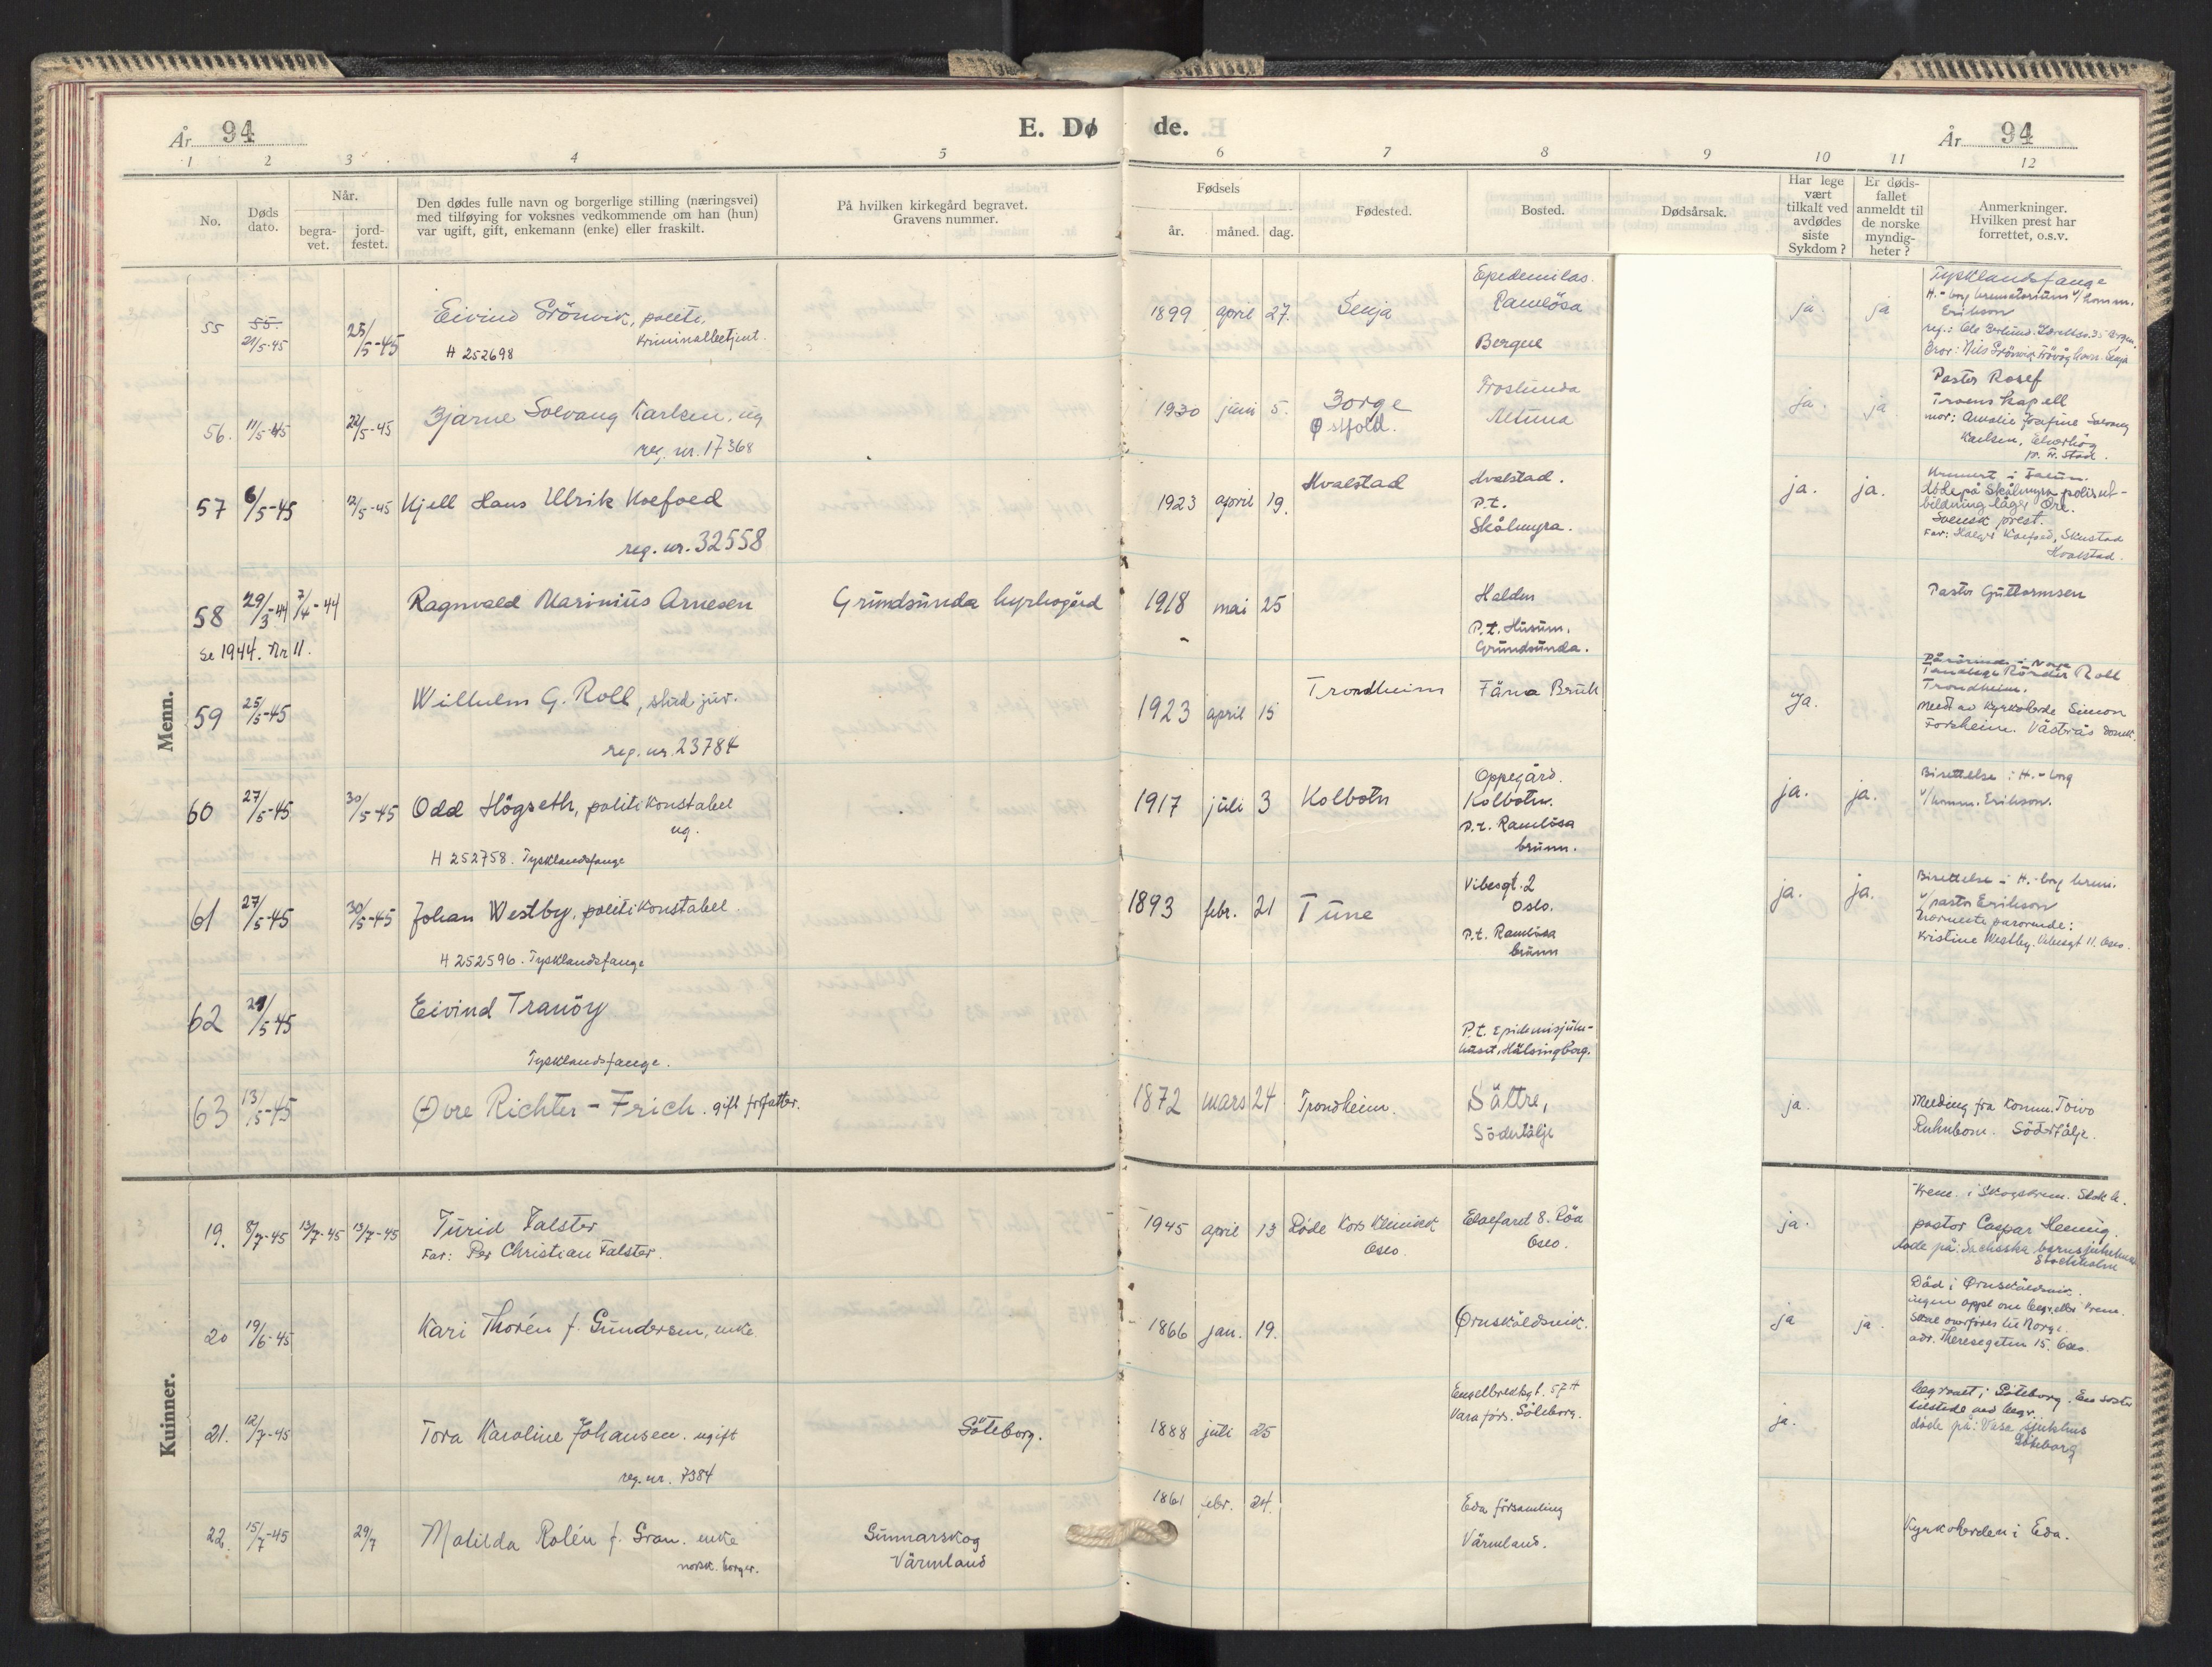 År 94
E. Dø
de.
År 94
1 2 3 4 5 6 7 8 9 10 11 12
No.
Døds dato.
Når.
begravet.
jordfestet.
Den dødes fulle navn og borgerlige stilling (næringsvei)
med tilføying for voksnes vedkommende om han (hun)
var ugift, gift, enkemann (enke) eller fraskilt.
På hvilken kirkegård begravet.
Gravens nummer.
Fødsels
år. måned. dag.
Fødested.
Bosted.
Dødsårsak.
Har lege vært tilkalt ved avdødes siste Sykdom?
Er dødsfallet anmeldt til de norske myndigheter?
Anmerkninger.
Hvilken prest har
forrettet, o.s.v.
Menn.
55 21/5-45 25/5-45 Eivind Grönvik, politi, kriminalbetjent.
H 252698
1899 april 27. Senja
Epedemilas.
Ramlösa
Bergen
ja. ja
Tysklandsfange
H.-borg krematorium v/komm.
Erikson
56. 11/5-45 22/5-45 Bjarne Solvang Karlsen, ug
reg. nr. 17368
1930 juni 5. Borge
Østfold.
Froslunda
Altuna
ja. ja
Pastor Rosef
Trons kapell
mor: Amalie Josefine Solvang
Karlsen,
p. Fr. stad.
57 6/5-45 12/5-45 Kjell Hans Ulrik Koefoed
reg. nr. 32558
1923 april 19. Hvalstad
Hvalstad.
P.t.
Skålmyra.
ja. ja.
Kremert i Falun.
döde på Skålmyra polisut-
bildning läger Öre.
Svensk prest.
Far: Helge Koefoed, Skustad
Hvalstad.
58 29/3-44 7/4-44 Ragnvald Marinius Arnesen
Grundsunda kyrkogård
1918 mai 25
Halden
P.t. Husum,
Grundsunda.
Pastor Guttormsen
Se 1944. Nr 11.
59 25/5-45 Wilhelm G. Roll, stud jur.
reg. nr. 23784
1923 april 15 Trondheim
Färna Bruk
ja.
Pårörende i Norge
Roll
Trondheim.
Medt av Kyrkoherde Simon
Forsheim. Västerås
60 27/5-45 30/5-45 Odd Högseth, politikonstabel
ug.
H 252758. Tysklandsfange
1917 juli 3 Kolbotn
Oppegård.
Kolbotn.
P.t. Ramlösa
brunn.
ja. ja.
Bisettelse i H.-borg
v/komm. Erikson.
61 27/5-45 30/5-45 Johan Westby, politikonstabel.
H 252596. Tysklandsfange
1893 febr. 21 Tune
Vibesgt. 2
Oslo.
P.t. Ramlösa
brunn
ja. ja.
Bisettelse i H.-borg krem.
v/pastor Erikson
Nærmeste pårörende:
Kristine Westby. Vibesgt 11. Oslo.
62 29/5-45 Eivind Tranöy
Tysklandsfange.
P.t. Epidemisjuk-
huset, Hälsingborg.
63 13/5-45 Övre Richter-Frich. gift forfatter.
1872 mars 24 Trondheim.
Sättre,
Södertälje
ja.
Melding fra Komm. Toivo
Ruhnbom. Södertälje.
Kvinner.
19. 8/7-45 13/7-45 13/7-45 Turid Falster
Far: Per Christian Falster.
1945 april 13 Röde Kors Klinikk
Oslo.
8. Röa
Oslo.
ja.
Krem. i Skogskrem. Stokh.
pastor Caspar Hennig.
döde på: Sachsska barnsjukhuset
Stockholm
20 19/6-45 Kari Thorén f. Gundersen, enke
1866 jan. 19.
Ørnsköldsvik.
ja ja.
Död i Ørnsköldsvik.
ingen oppl om begr. eller krem.
Skal overföres til Norge.
adr. Theresegaten 15. Oslo.
21. 12/7-45 Tora Karoline Johansen. ugift
reg. nr. 7384
Göteborg.
1888 juli 25
Engelbrektsgt. 57 A
Vasa förs. Göteborg.
ja.
begravet i Göteborg. En soster
tilstede ved begr.
döde på: Vasa sjukhus
Göteborg
22. 15/7-45 29/7 Matilda Rolén f. Gran. enke
norsk. borger.
Gunnarskog
Värmland
1861 febr. 24.
Eda församling
Värmland.
Kyrkoherden i Eda.